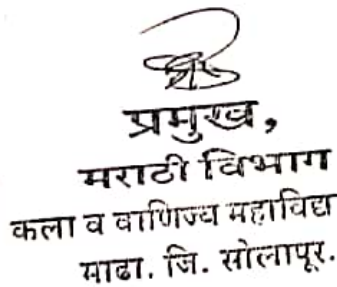 प्रमुख,
मराठी विभाग
कला व वाणिज्य महाविद्य
माढा. जि. सोलापूर.